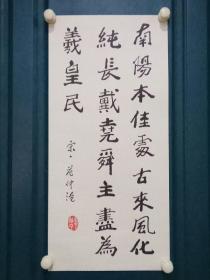 南陽本佳處古來風化
純長戴堯舜主盡為
羲皇民
宋·范仲淹